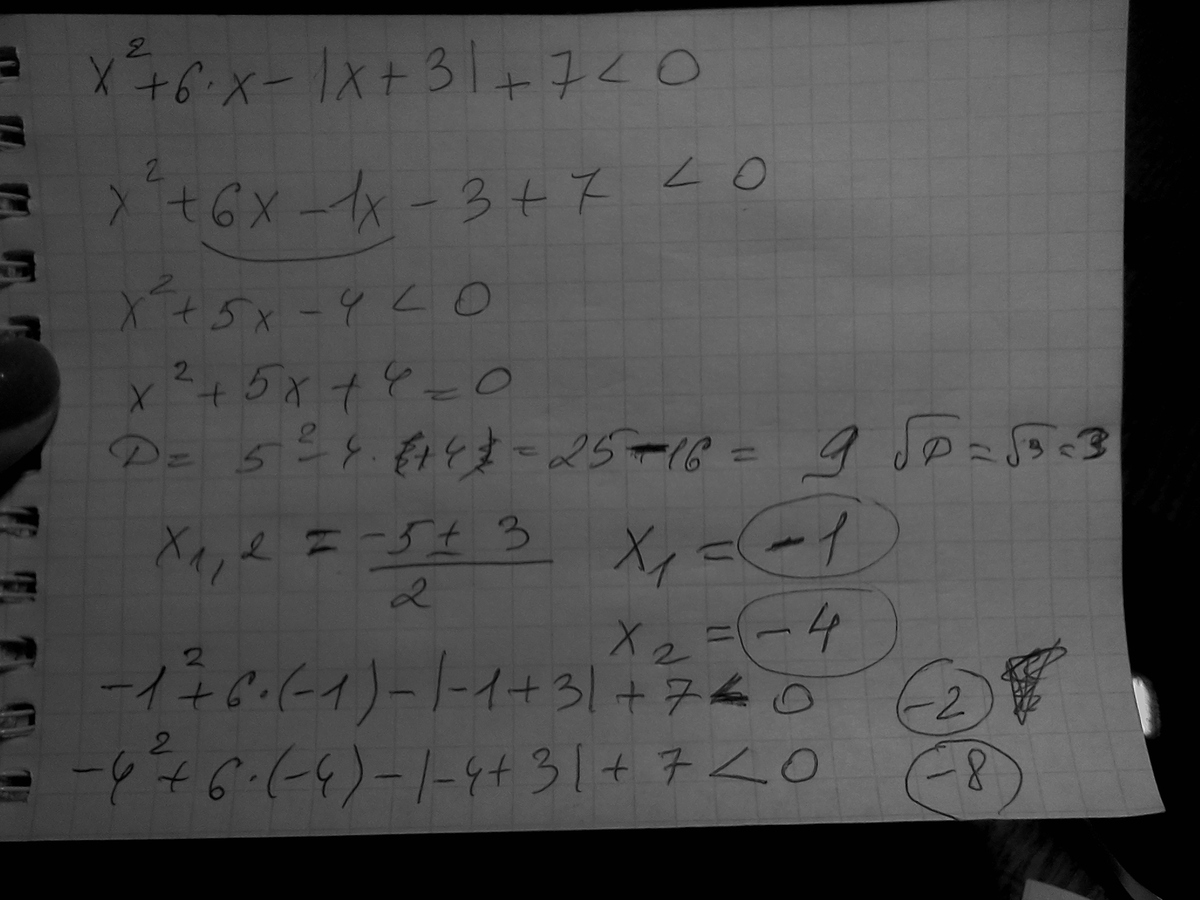 x² + 6·x - |x + 3| + 7 < 0
x² + 6x - 1x - 3 + 7 < 0
x² + 5x - 4 < 0
x² + 5x + 4 = 0
D = 5² - 4 · (+4) = 25 - 16 = 9 √D = √9 = 3
x₁,₂ = (-5 ± 3)/2 x₁ = -1
x₂ = -4
-1² + 6·(-1) - |-1 + 3| + 7 < 0 -2
-4² + 6·(-4) - |-4 + 3| + 7 < 0 -8